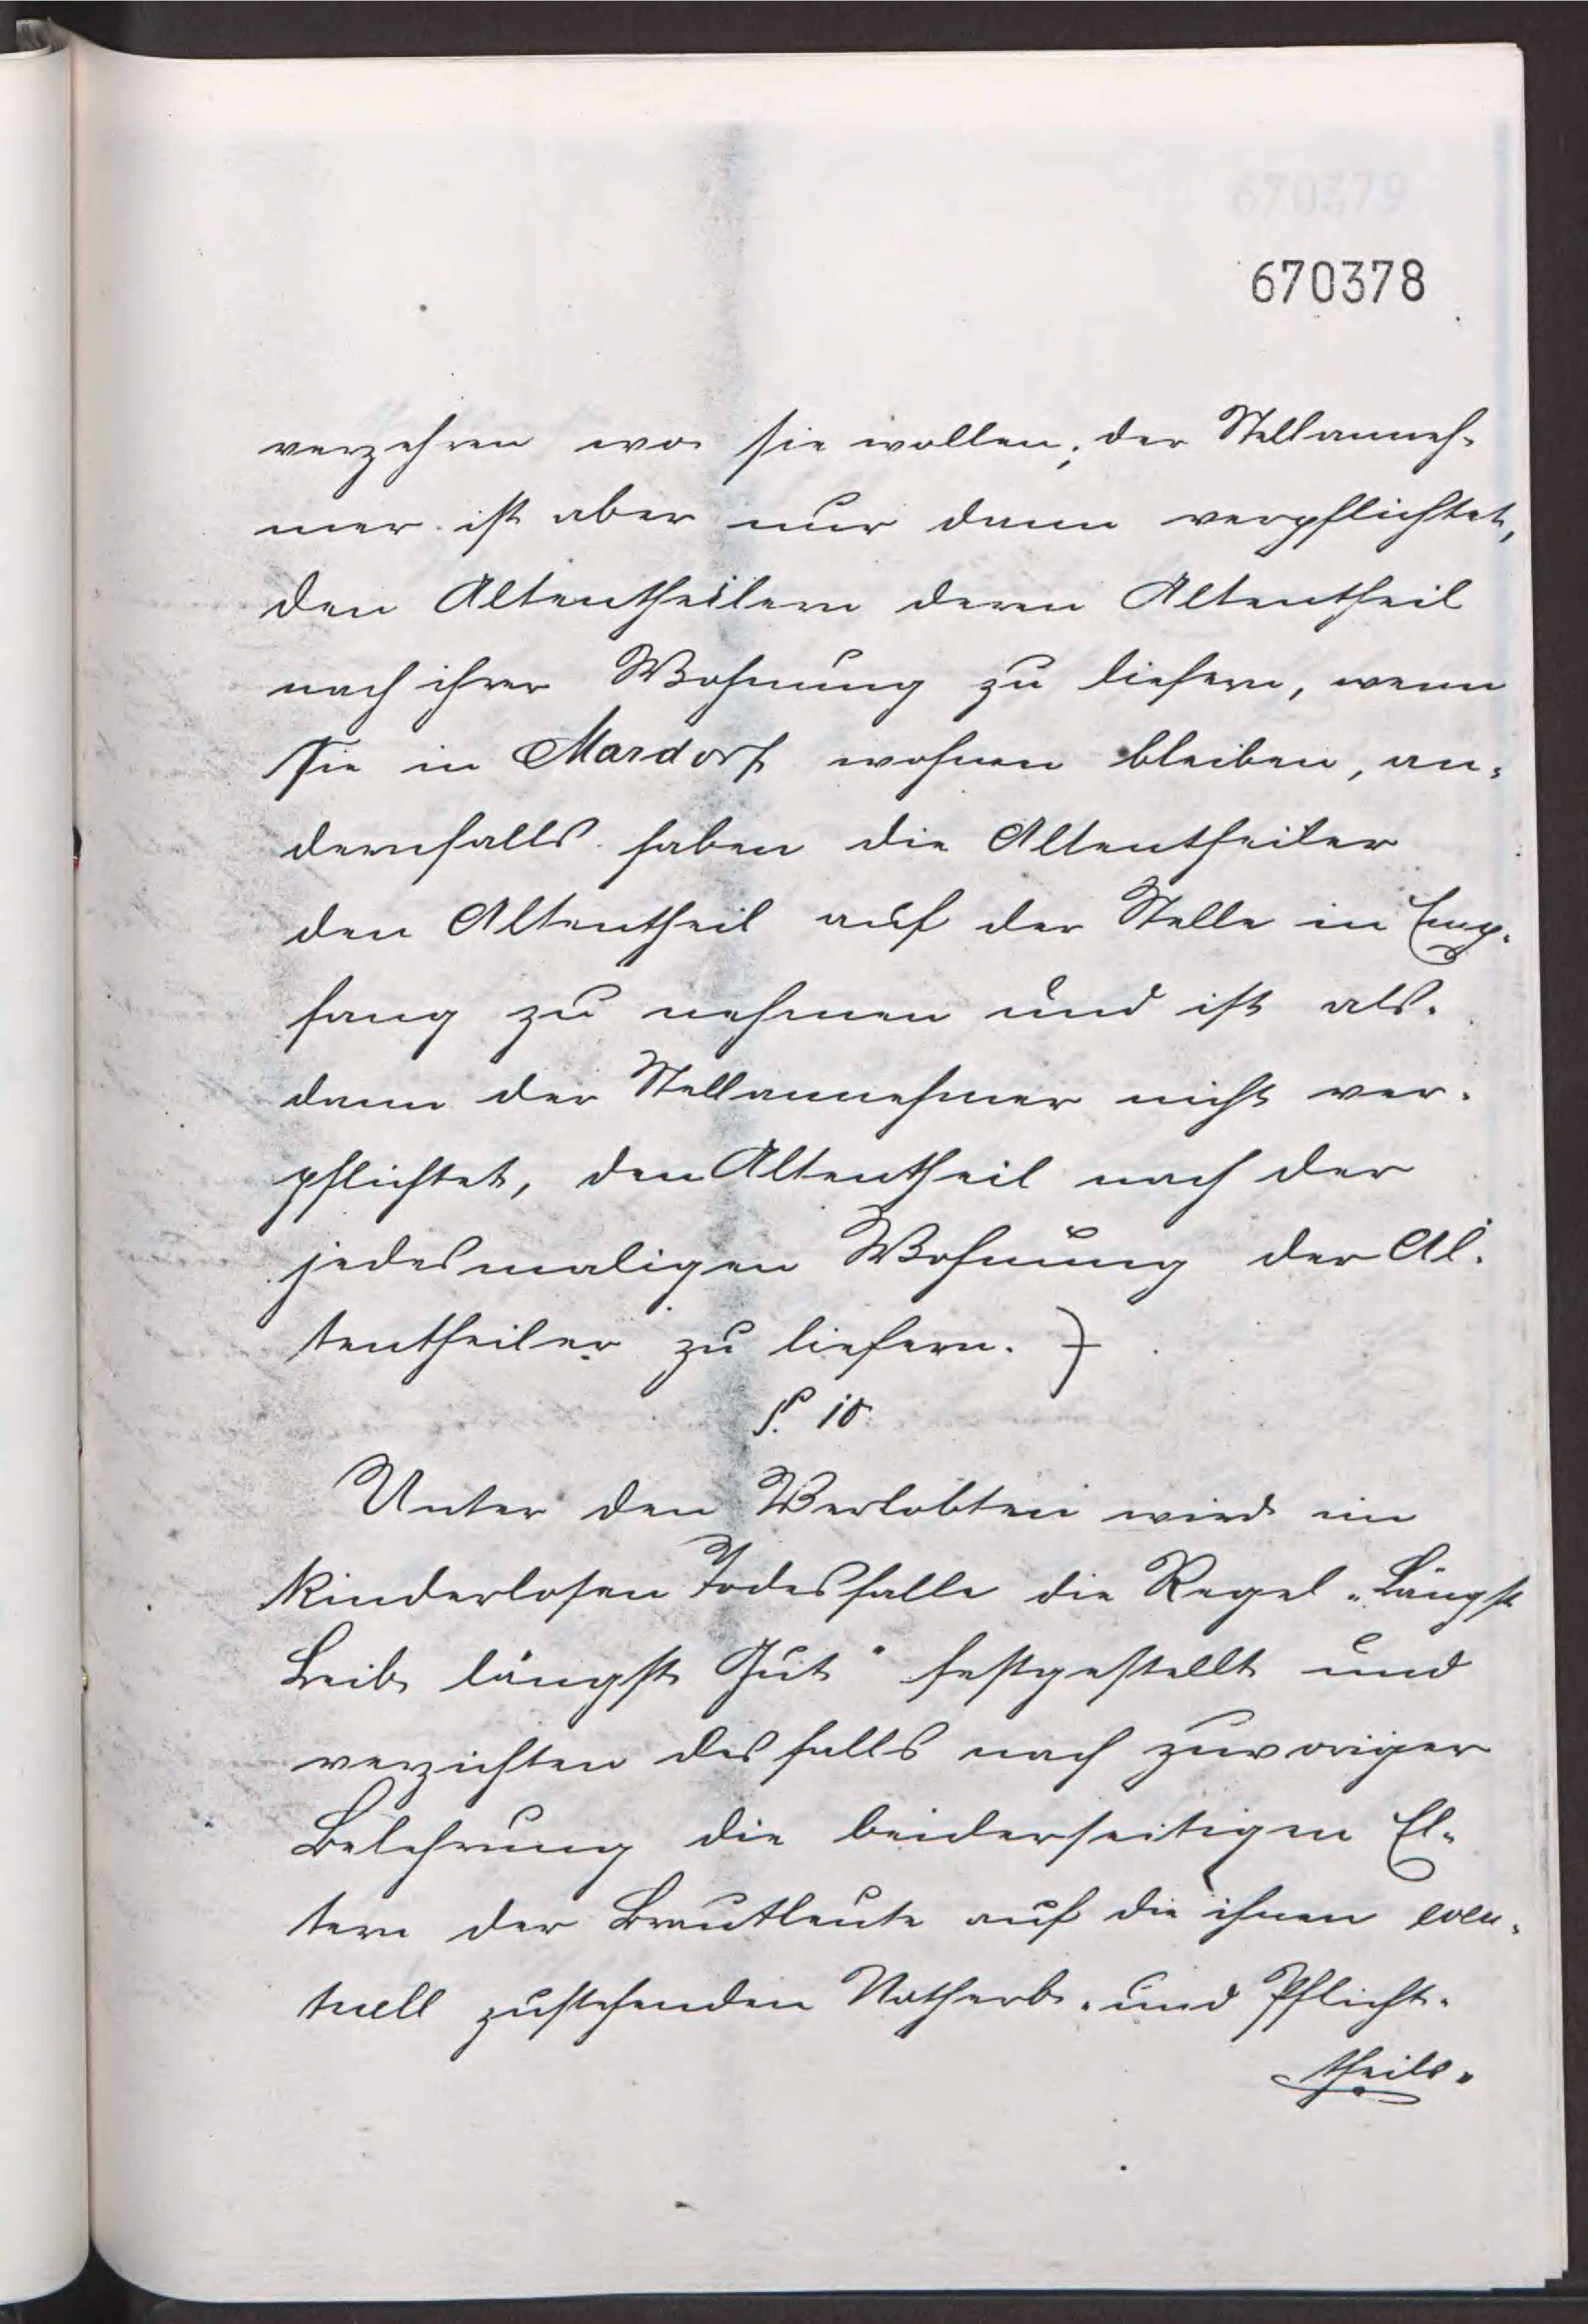 670379
670378
verzehren wo sie wollen; der Stellanneh-
mer ist aber nur dann verpflichtet,
den Altentheilern deren Altentheil
nach ihrer Wohnung zu liefern, wenn
sie in Mardorf wohnen bleiben, an-
dernfalls haben die Altentheiler
den Altentheil auf der Stelle in Emp-
fang zu nehmen und ist als-
dann der Stellannehmer nicht ver-
pflichtet, den Altentheil nach der
jedesmaligen Wohnung der Al-
tentheiler zu liefern.
§. 10
Unter den Verlobten wird im
kinderlosen Todesfalle die Regel „Längst
Leib längst Gut" festgestellt und
verzichten desfalls nach zuvoriger
Belehrung die beiderseitigen El-
tern der Brautleute auf die ihnen even-
tuell zustehenden Notherb- und Pflicht-
theils-